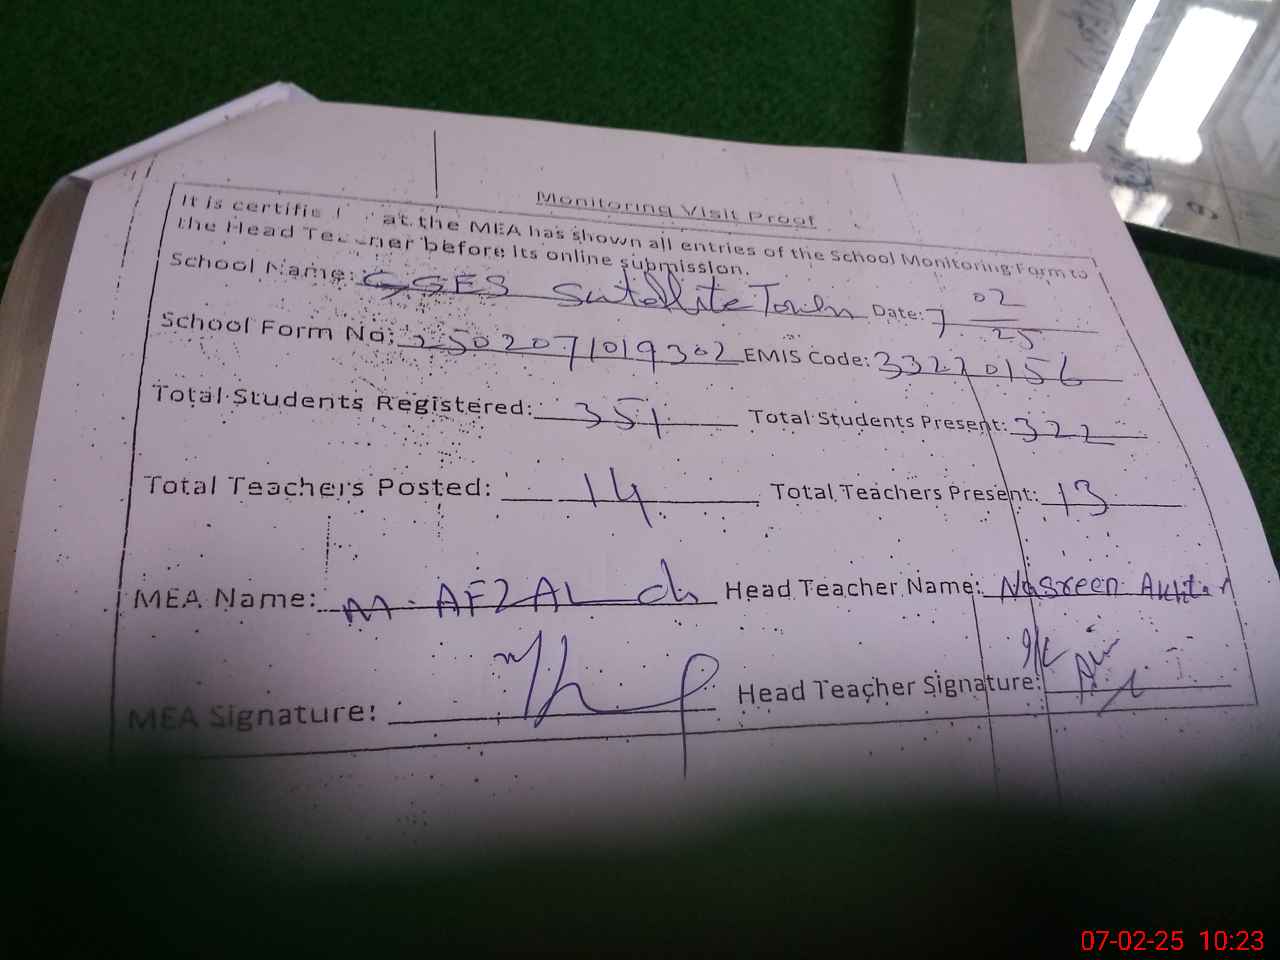 Monitoring Visit Proof
It is certifie at the MEA has shown all entries of the School Monitoring Form to
the Head Teacher before its online submission.
School Name: GGES Satellite Town Date: 7 02 25
School Form No: 2502071019302 EMIS Code: 33220156
Total Students Registered: 351 Total Students Present: 322
Total Teachers Posted: 14 Total Teachers Present: 13
MEA Name: M. AFZAL ch Head Teacher Name: Nasreen Akhtar
MEA Signature: Head Teacher Signature:
07-02-25 10:23